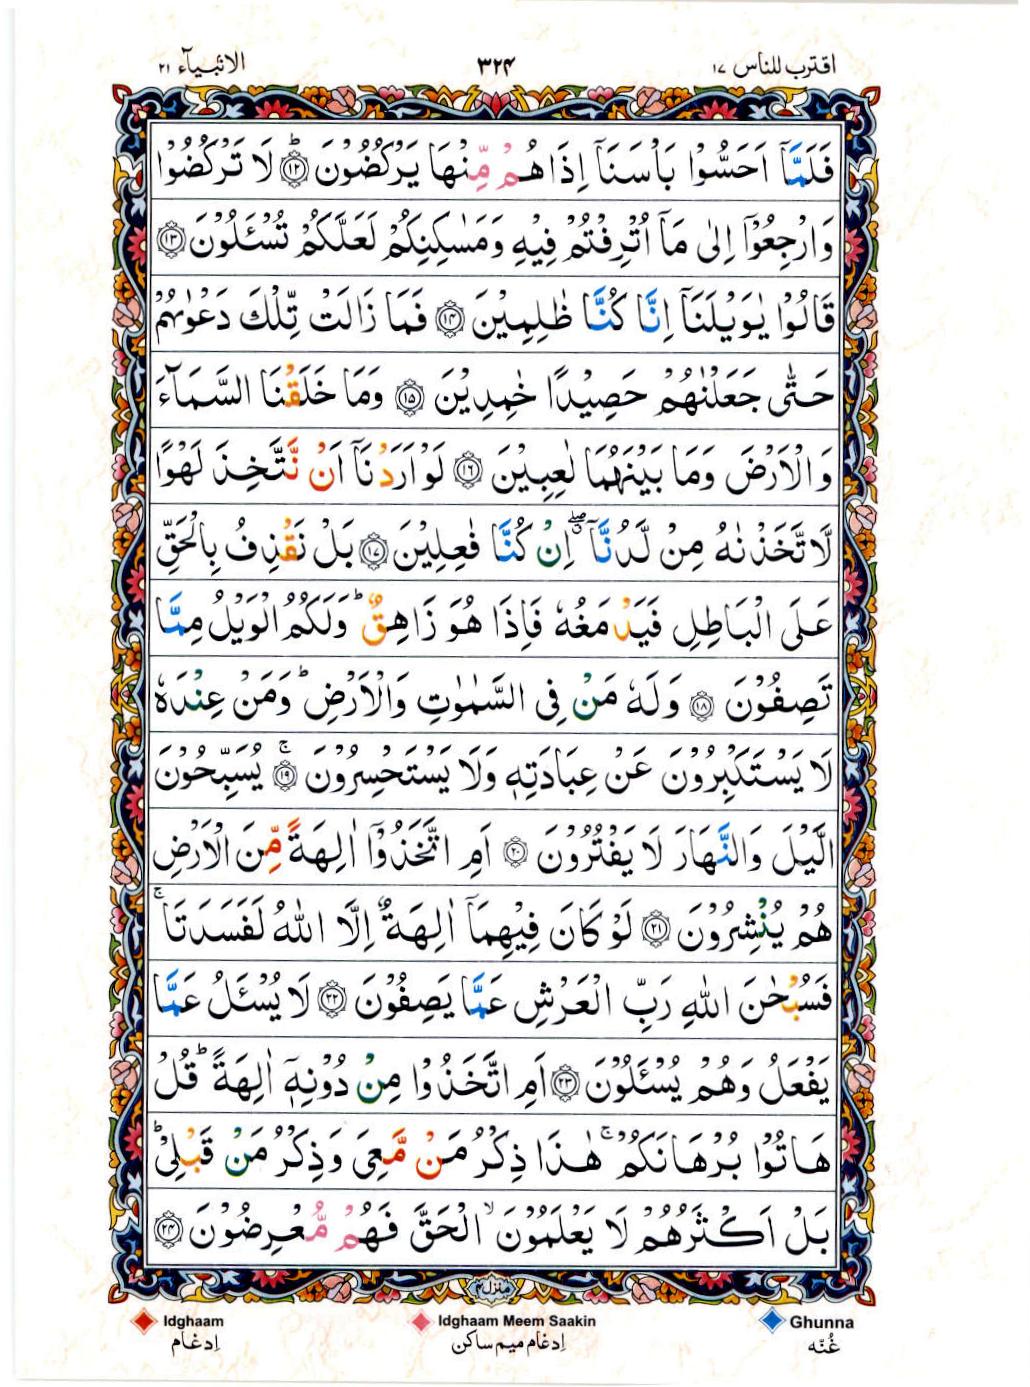 اقترب للناس ١٧
٣٢٤
الانبيآء ٢١
فَلَمَّاۤ اَحَسُّوْا بَاْسَنَاۤ اِذَا هُمْ مِّنْهَا يَرْكُضُوْنَ ؕ ﴿۱۲﴾ لَا تَرْكُضُوْا
وَارْجِعُوْۤا اِلٰى مَاۤ اُتْرِفْتُمْ فِيْهِ وَمَسٰكِنِكُمْ لَعَلَّكُمْ تُسْـَٔلُوْنَ ﴿۱۳﴾
قَالُوْا يٰوَيْلَنَاۤ اِنَّا كُنَّا ظٰلِمِيْنَ ﴿۱۴﴾ فَمَا زَالَتْ تِّلْكَ دَعْوٰىهُمْ
حَتّٰى جَعَلْنٰهُمْ حَصِيْدًا خٰمِدِيْنَ ﴿۱۵﴾ وَمَا خَلَقْنَا السَّمَآءَ
وَالْاَرْضَ وَمَا بَيْنَهُمَا لٰعِبِيْنَ ﴿۱۶﴾ لَوْ اَرَدْنَاۤ اَنْ نَّتَّخِذَ لَهْوًا
لَّاتَّخَذْنٰهُ مِنْ لَّدُنَّاۤ ۖ اِنْ كُنَّا فٰعِلِيْنَ ﴿۱۷﴾ بَلْ نَقْذِفُ بِالْحَقِّ
عَلَى الْبَاطِلِ فَيَدْمَغُهٗ فَاِذَا هُوَ زَاهِقٌ ؕ وَلَكُمُ الْوَيْلُ مِمَّا
تَصِفُوْنَ ﴿۱۸﴾ وَلَهٗ مَنْ فِى السَّمٰوٰتِ وَالْاَرْضِ ؕ وَمَنْ عِنْدَهٗ
لَا يَسْتَكْبِرُوْنَ عَنْ عِبَادَتِهٖ وَلَا يَسْتَحْسِرُوْنَ ۚ ﴿۱۹﴾ يُسَبِّحُوْنَ
الَّيْلَ وَالنَّهَارَ لَا يَفْتُرُوْنَ ﴿۲۰﴾ اَمِ اتَّخَذُوْۤا اٰلِهَةً مِّنَ الْاَرْضِ
هُمْ يُنْشِرُوْنَ ﴿۲۱﴾ لَوْ كَانَ فِيْهِمَاۤ اٰلِهَةٌ اِلَّا اللّٰهُ لَفَسَدَتَا ۚ
فَسُبْحٰنَ اللّٰهِ رَبِّ الْعَرْشِ عَمَّا يَصِفُوْنَ ﴿۲۲﴾ لَا يُسْـَٔلُ عَمَّا
يَفْعَلُ وَهُمْ يُسْـَٔلُوْنَ ﴿۲۳﴾ اَمِ اتَّخَذُوْا مِنْ دُوْنِهٖۤ اٰلِهَةً ؕ قُلْ
هَاتُوْا بُرْهَانَكُمْ ۚ هٰذَا ذِكْرُ مَنْ مَّعِىَ وَذِكْرُ مَنْ قَبْلِىْ ؕ
بَلْ اَكْثَرُهُمْ لَا يَعْلَمُوْنَ ۙ الْحَقَّ فَهُمْ مُّعْرِضُوْنَ ﴿۲۴﴾
منزل۴
Idghaam Idghaam Meem Saakin Ghunna
اِدغام اِدغام میم ساکن غُنّه